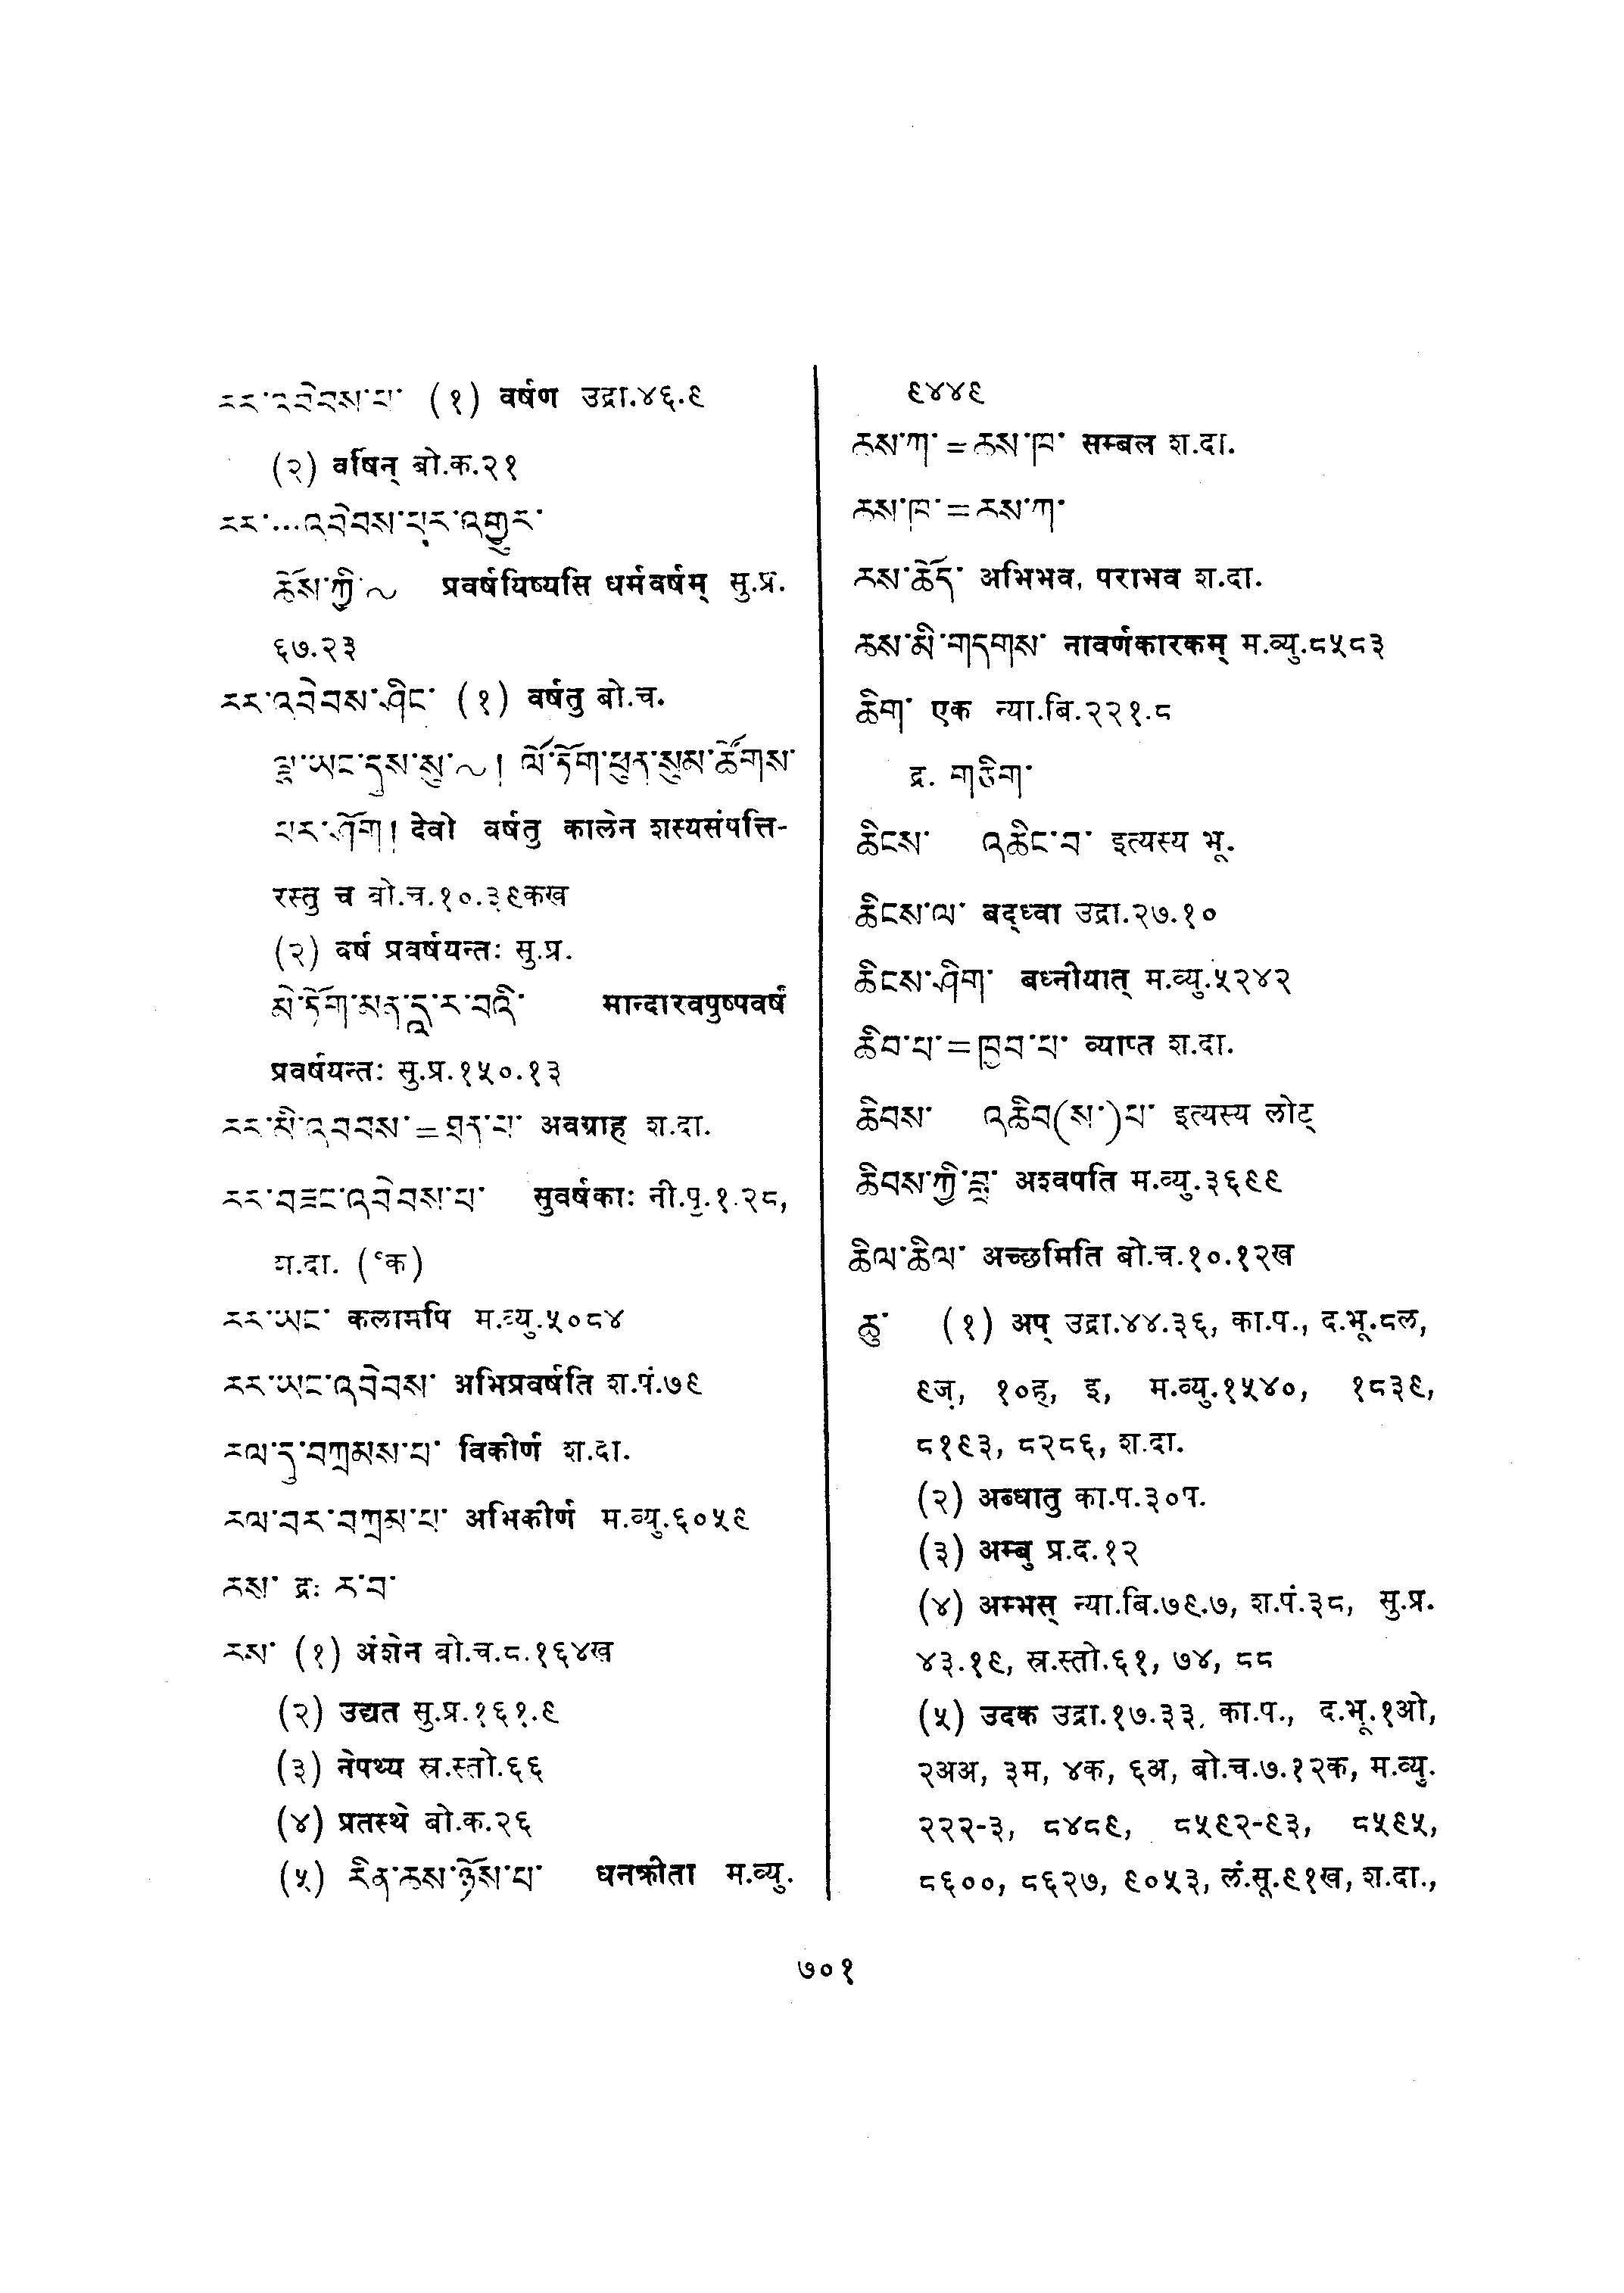 ཆར་འབེབས་པ་ (१) वर्षण उद्रा.४६.९
(२) वर्षिन् बो.क.२१
ཆར་...འབེབས་པར་འགྱུར་
ཆོས་ཀྱི་~ प्रवर्षयिष्यसि धर्मवर्षम् सु.प्र.
६७.२३
ཆར་འབེབས་ཤིང་ (१) वर्षतु बो.च.
ལྷ་ཡང་དུས་སུ་~། ལོ་ཏོག་ཕུན་སུམ་ཚོགས་
པར་ཤོག། देवो वर्षतु कालेन शस्यसंपत्ति-
रस्तु च बो.च.१०.३९कख
(२) वर्ष प्रवर्षयन्तः सु.प्र.
མེ་ཏོག་མན་དཱ་ར་བའི་ मान्दारवपुष्पवर्षं
प्रवर्षयन्तः सु.प्र.१५०.१३
ཆར་མི་འབབས་=ཐན་པ་ अवग्राह श.दा.
ཆར་བཟང་འབེབས་པ་ सुवर्षकाः नी.पृ.१.२८,
श.दा. (॰क)
ཆར་ཡང་ कलामपि म.व्यु.५०८४
ཆར་ཡང་འབེབས་ अभिप्रवर्षति श.पं.७९
ཆལ་དུ་བཀྲམས་པ་ विकीर्ण श.दा.
ཆལ་བར་བཀྲམ་པ་ अभिकीर्ण म.व्यु.६०५९
ཆས་ द्रः ཆ་བ་
ཆས་ (१) अंशेन बो.च.८.१६४ख
(२) उद्यत सु.प्र.१६१.९
(३) नेपथ्य स्र.स्तो.६६
(४) प्रतस्थे बो.क.२६
(५) རིན་ཆས་ཉོས་པ་ धनक्रीता म.व्यु.
९४४९
ཆས་ཀ་=ཆས་ཁ་ सम्बल श.दा.
ཆས་ཁ་=ཆས་ཀ་
ཆས་ཆོད་ अभिभव, पराभव श.दा.
ཆས་མི་གདགས་ नावर्णकारकम् म.व्यु.८५८३
ཆིག་ एक न्या.बि.२२१.८
द्र. གཅིག་
ཆིངས་ འཆིང་བ་ इत्यस्य भू.
ཆིངས་ལ་ बद्ध्वा उद्रा.२७.१०
ཆིངས་ཤིག་ बध्नीयात् म.व्यु.५२४२
ཆིབ་པ་=ཁྱབ་པ་ व्याप्त श.दा.
ཆིབས་ འཆིབ(ས་)པ་ इत्यस्य लोट्
ཆིབས་ཀྱི་བླ་ अश्वपति म.व्यु.३६९९
ཆིལ་ཆིལ་ अच्छमिति बो.च.१०.१२ख
ཆུ་ (१) अप् उद्रा.४४.३६, का.प., द.भू.८ल,
९ज़, १०ह, इ, म.व्यु.१५४०, १८३९,
८१९३, ८२८६, श.दा.
(२) अब्धातु का.प.३०प.
(३) अम्बु प्र.द.१२
(४) अम्भस् न्या.बि.७९.७, श.पं.३८, सु.प्र.
४३.१९, स्र.स्तो.६१, ७४, ८८
(५) उदक उद्रा.१७.३३, का.प., द.भू.१ओ,
२अअ, ३म, ४क, ६अ, बो.च.७.१२क, म.व्यु.
२२२-३, ८४८९, ८५९२-९३, ८५९५,
८६००, ८६२७, ९०५३, लं.सू.९१ख, श.दा.,
७०१